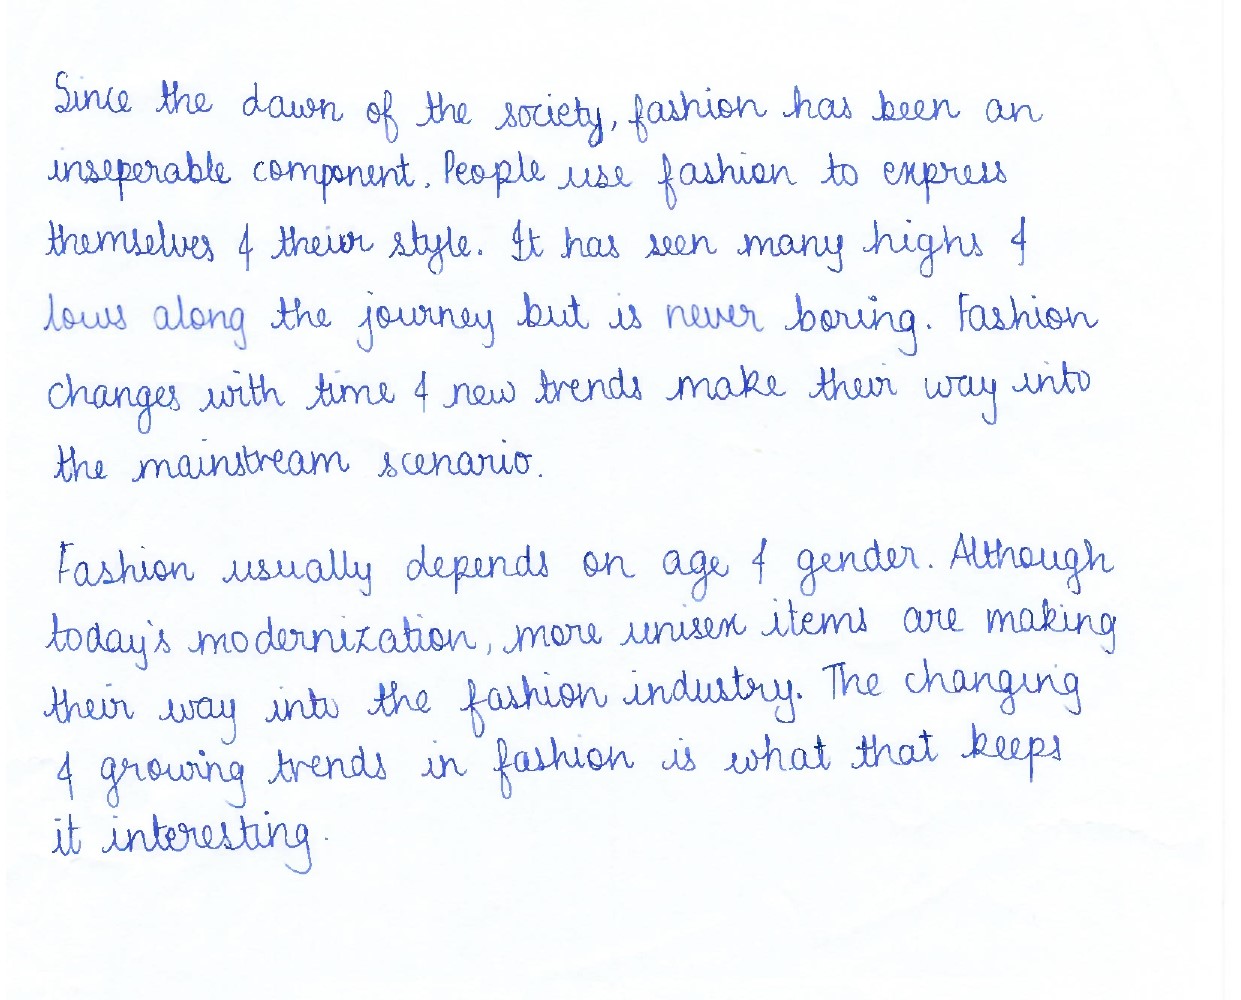 Since the dawn of the society, fashion has been an
inseperable component. People use fashion to express
themselves & their style. It has seen many highs &
lows along the journey but is never boring. Fashion
changes with time & new trends make their way into
the mainstream scenario.
Fashion usually depends on age & gender. Although
today's modernization, more unisex items are making
their way into the fashion industry. The changing
& growing trends in fashion is what that keeps
it interesting.